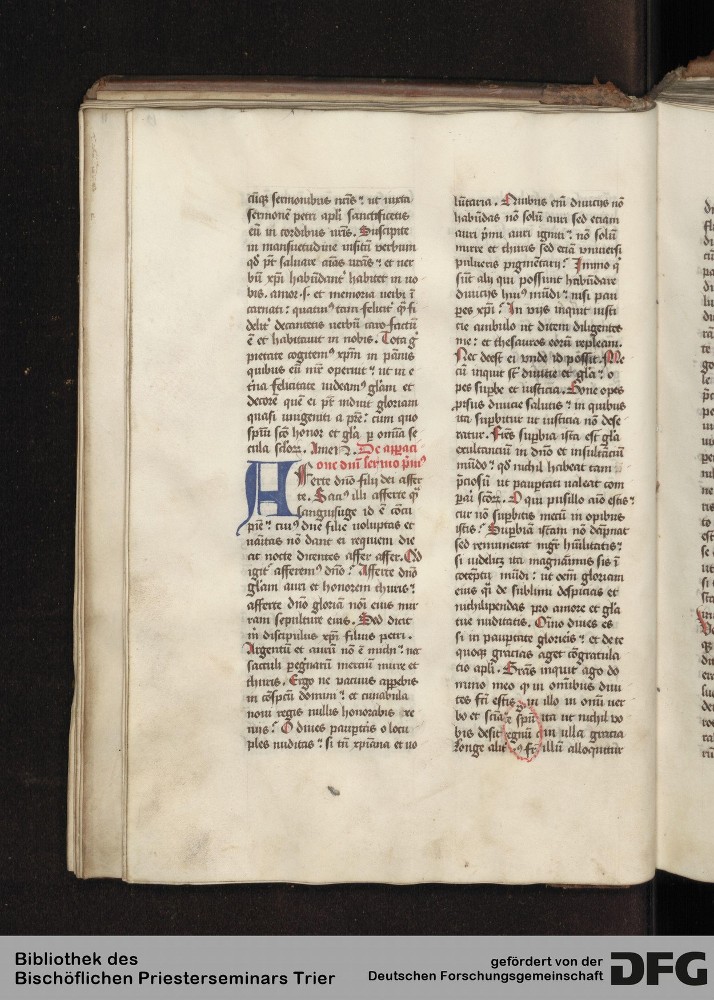 cūqꝫ sermonibus vr̄is ⁊ ut iuxta
sermonē petri apl̄i sanctificetis
eū in cordibus vr̄is. Suscipite
in mansuetudine insitū verbum
qđ pt̄ saluare aīas vr̄as ⁊ et ver
bū xp̄i habūdant͛ habitet in vo
bis. amor .s. et memoria verbi ī
carnati : quatinꝰ tam felicit͛ qͣ fi
delit͛ decantetis verbū caro factū
ē et habitauit in nobis. Tota gͦ
pietate cogitemꝰ xp̄m in pānis
quibus eū mr̄ operuit ⁊ ut in e
t̄na felicitate videamꝰ gl̄am et
decorē quē ei pr̄ induit gloriam
quasi unigeniti a pr̄e : cum quo
sp̄iti sc̄o honor et gl̄a ꝑ om̄ia se
cula sc̄lorꝫ. Amen. De appaci
one dn̄i sermo p̄mꝰ
Afferte dn̄o filij dei affer
te. Sacꝰ illi afferte qͣ
sanguisuge id ē cōcu
pn̄e ⁊ cuiꝰ due filie voluptas et
vanitas nō dant ei requiem die
ac nocte dicentes affer affer. Qđ
igit͛ afferemꝰ dn̄o : Afferte dn̄o
gl̄am auri et honorem thuris ⁊
afferte dn̄o gloriā nōi eius mir
ram sepulture eius. Sed dicit
m̄ discipulus xp̄i filius petri.
Argentū et aurū nō ē michi ⁊ nec
sacculi pegnarū mercium mirre et
thuris. Ergo ne vacuus apparebis
in cōspc̄u domini ⁊ et cunabula
noui regis nullis honorabis xe
niis : O diues paupt̄as o locu
ples nuditas ⁊ si tn̄ xp̄iana et vo
lūtaria. Quibus em̄ diuicijs nō
habūdas nō solū auri sed etiam
auri p̄mi auri igniti ⁊ nō solū
mirre et thuris sed etiā vniuersi
pulueris pigmentarij : Immo q̄
sūt alij qui possunt habūdare
diuicijs huiꝰ mūdi ⁊ nisi pau
ꝑes xp̄i : In vijs inquit iusti
cie ambulo ut ditem diligentes
me : et thesauros eorū repleam.
Nec deest ei vnde id possit. Me
cū inquit st̄ diuitie et gl̄a ⁊ o
pes supbe et iusticia. Bone opes
ꝓrsus diuicie salutis ⁊ in quibus
ita supbitur ut iusticia nō dese
ratur. Fides supbia ista est gl̄a
exultantiū in dn̄o et insultātiū
mūdo ⁊ qđ nichil habeat tam
p̄ciosū ut paupertati valeat com
pari sc̄orꝫ. O qui pusillo aīo estis ⁊
cur nō supbitis mecū in opibus
istis : Supbiā istam nō dāpnat
sed remunerat mgr̄ hūilitatis ⁊
si videlicꝫ ita magnāimus sis ī
cōtēptu mūdi : ut oēm gloriam
eius qͣ de sublimi despicias et
nichilipendas pro amore et gl̄a
tue nuditatis. Om̄o diues es
si in paupertate gloriēis ⁊ et de te
quoqꝫ gracias aget cōgratula
tio apl̄i. Grās inquit ago do
mino meo qͣ in om̄ibus diui
tes fc̄i estis in illo in om̄i ver
bo et sciāe sp̄u ita ut nichil vo
bis desit in ulla gracia
Longe alit͛ illū alloquitur
Bibliothek des
Bischöflichen Priesterseminars Trier
gefördert von der
Deutschen Forschungsgemeinschaft
DFG